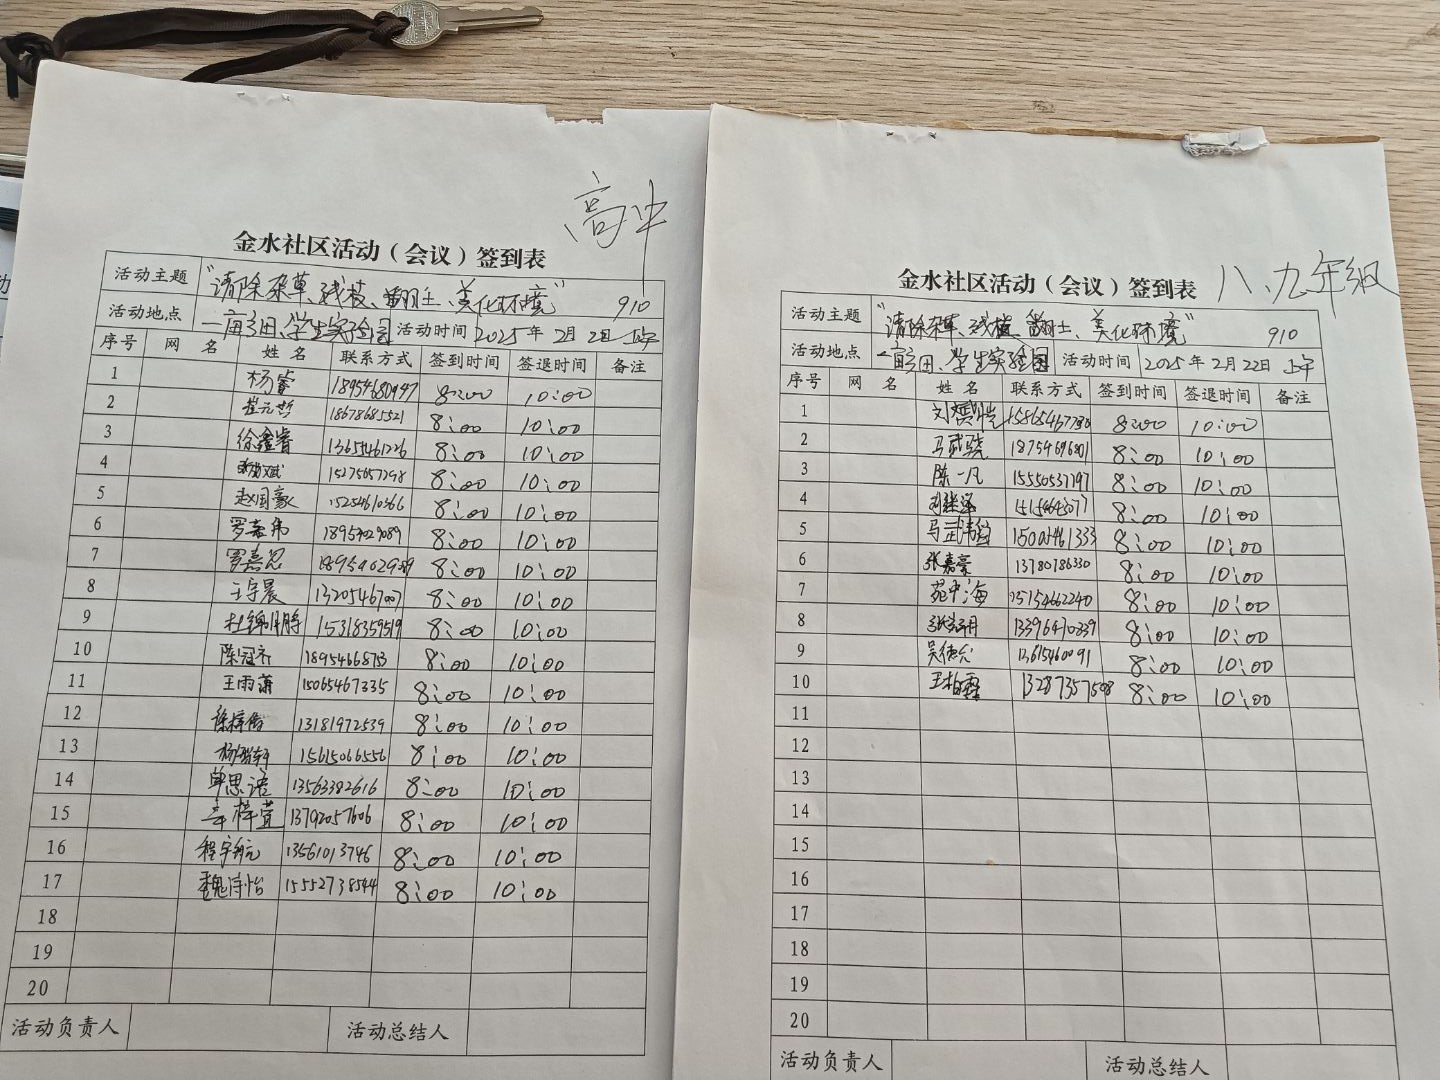 高中
金水社区活动（会议）签到表
活动主题 "清除杂草、残枝、翻土、美化环境" 910
活动地点 一亩方田、学生实验园 活动时间 2025年2月22日 上午
序号 网 名 姓 名 联系方式 签到时间 签退时间 备注
1 杨睿 18954680947 8:00 10:00
2 崔元哲 18678685521 8:00 10:00
3 徐鑫睿 13655461226 8:00 10:00
4 15275057298 8:00 10:00
5 赵国豪 15254610366 8:00 10:00
6 罗嘉伟 8:00 10:00
7 罗嘉恩 8:00 10:00
8 王宇晨 13205467007 8:00 10:00
9 杜锦鹏 15318359519 8:00 10:00
10 陈冠齐 8:00 10:00
11 王雨潇 15065467335 8:00 10:00
12 徐梓倍 13181972539 8:00 10:00
13 杨皓轩 15615066556 8:00 10:00
14 单思语 13563382616 8:00 10:00
15 李梓萱 13792057606 8:00 10:00
16 程宇航 13561013746 8:00 10:00
17 魏诗怡 15552738544 8:00 10:00
18
19
20
活动负责人 活动总结人
八、九年级
金水社区活动（会议）签到表
活动主题 "清除杂草、残枝、翻土、美化环境" 910
活动地点 一亩方田、学生实验园 活动时间 2025年2月22日 上午
序号 网 名 姓 名 联系方式 签到时间 签退时间 备注
1 15865467780 8:00 10:00
2 马武骁 18754696801 8:00 10:00
3 陈一凡 15550537197 8:00 10:00
4 刘继泽 8:00 10:00
5 15005461333 8:00 10:00
6 张嘉豪 13780786330 8:00 10:00
7 苑中海 15154662240 8:00 10:00
8 13396470339 8:00 10:00
9 吴德允 13615460091 8:00 10:00
10 王柏霖 13287357598 8:00 10:00
11
12
13
14
15
16
17
18
19
20
活动负责人 活动总结人